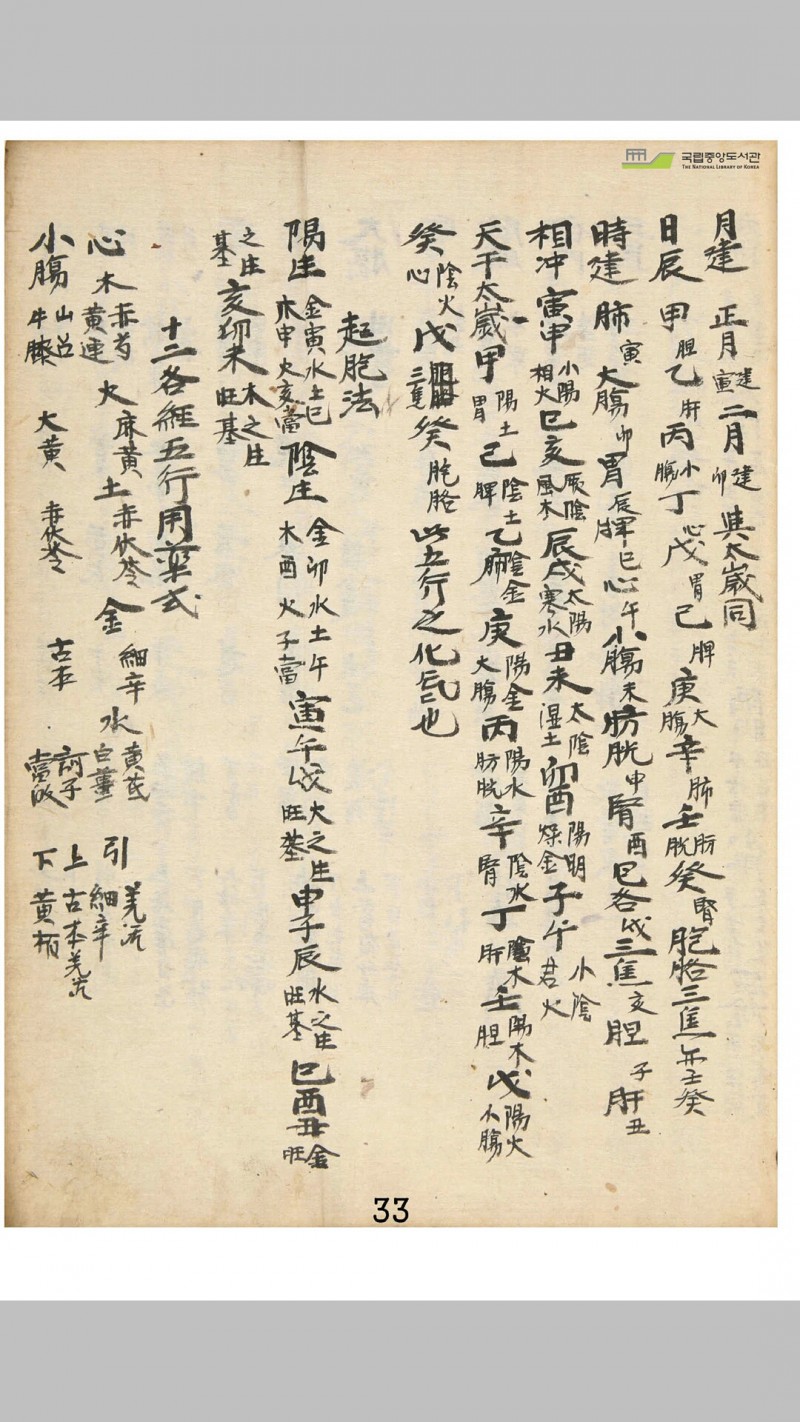 국립중앙도서관
THE NATIONAL LIBRARY OF KOREA
月建 正月建寅 二月建卯 與太歲同
日辰 甲胆 乙肝 丙小膓 丁心 戊胃 己脾 庚大膓 辛肺 壬肪胱 癸腎 胞胳三焦 壬癸
時建 肺寅 大膓卯 胃辰 脾巳 心午 小膓未 肪胱申 腎酉 包各戌 三焦亥 胆子 肝丑
相冲 寅申小陽相火 巳亥厥陰風木 辰戌太陽寒水 丑未太陰湿土 卯酉陽明燥金 子午小陰君火
天干太歲 甲陽土胃 己陰土脾 乙陰金肺 庚陽金大膓 丙陽水肪胱 辛陰水腎 丁陰木肝 壬陽木胆 戊陽火小膓
癸陰火心 戊三焦 癸胞胳 此五行之化氣也
起胞法
陽生 金寅水土巳木申火亥當 陰庄 金卯水土午木酉火子當 寅午戌火之庄旺基 申子辰水之庄旺基 巳酉丑金旺
之庄基 亥卯未木之庄旺基
十二各經五行用藥式
心 木赤芍黄連 火麻黄 土赤伏苓 金細辛 水黄芪白薑 引羌活細辛
小膓 山芍牛膝 大黄 赤伏苓 古本 訶子當 上古本羌活 下黄栢
33